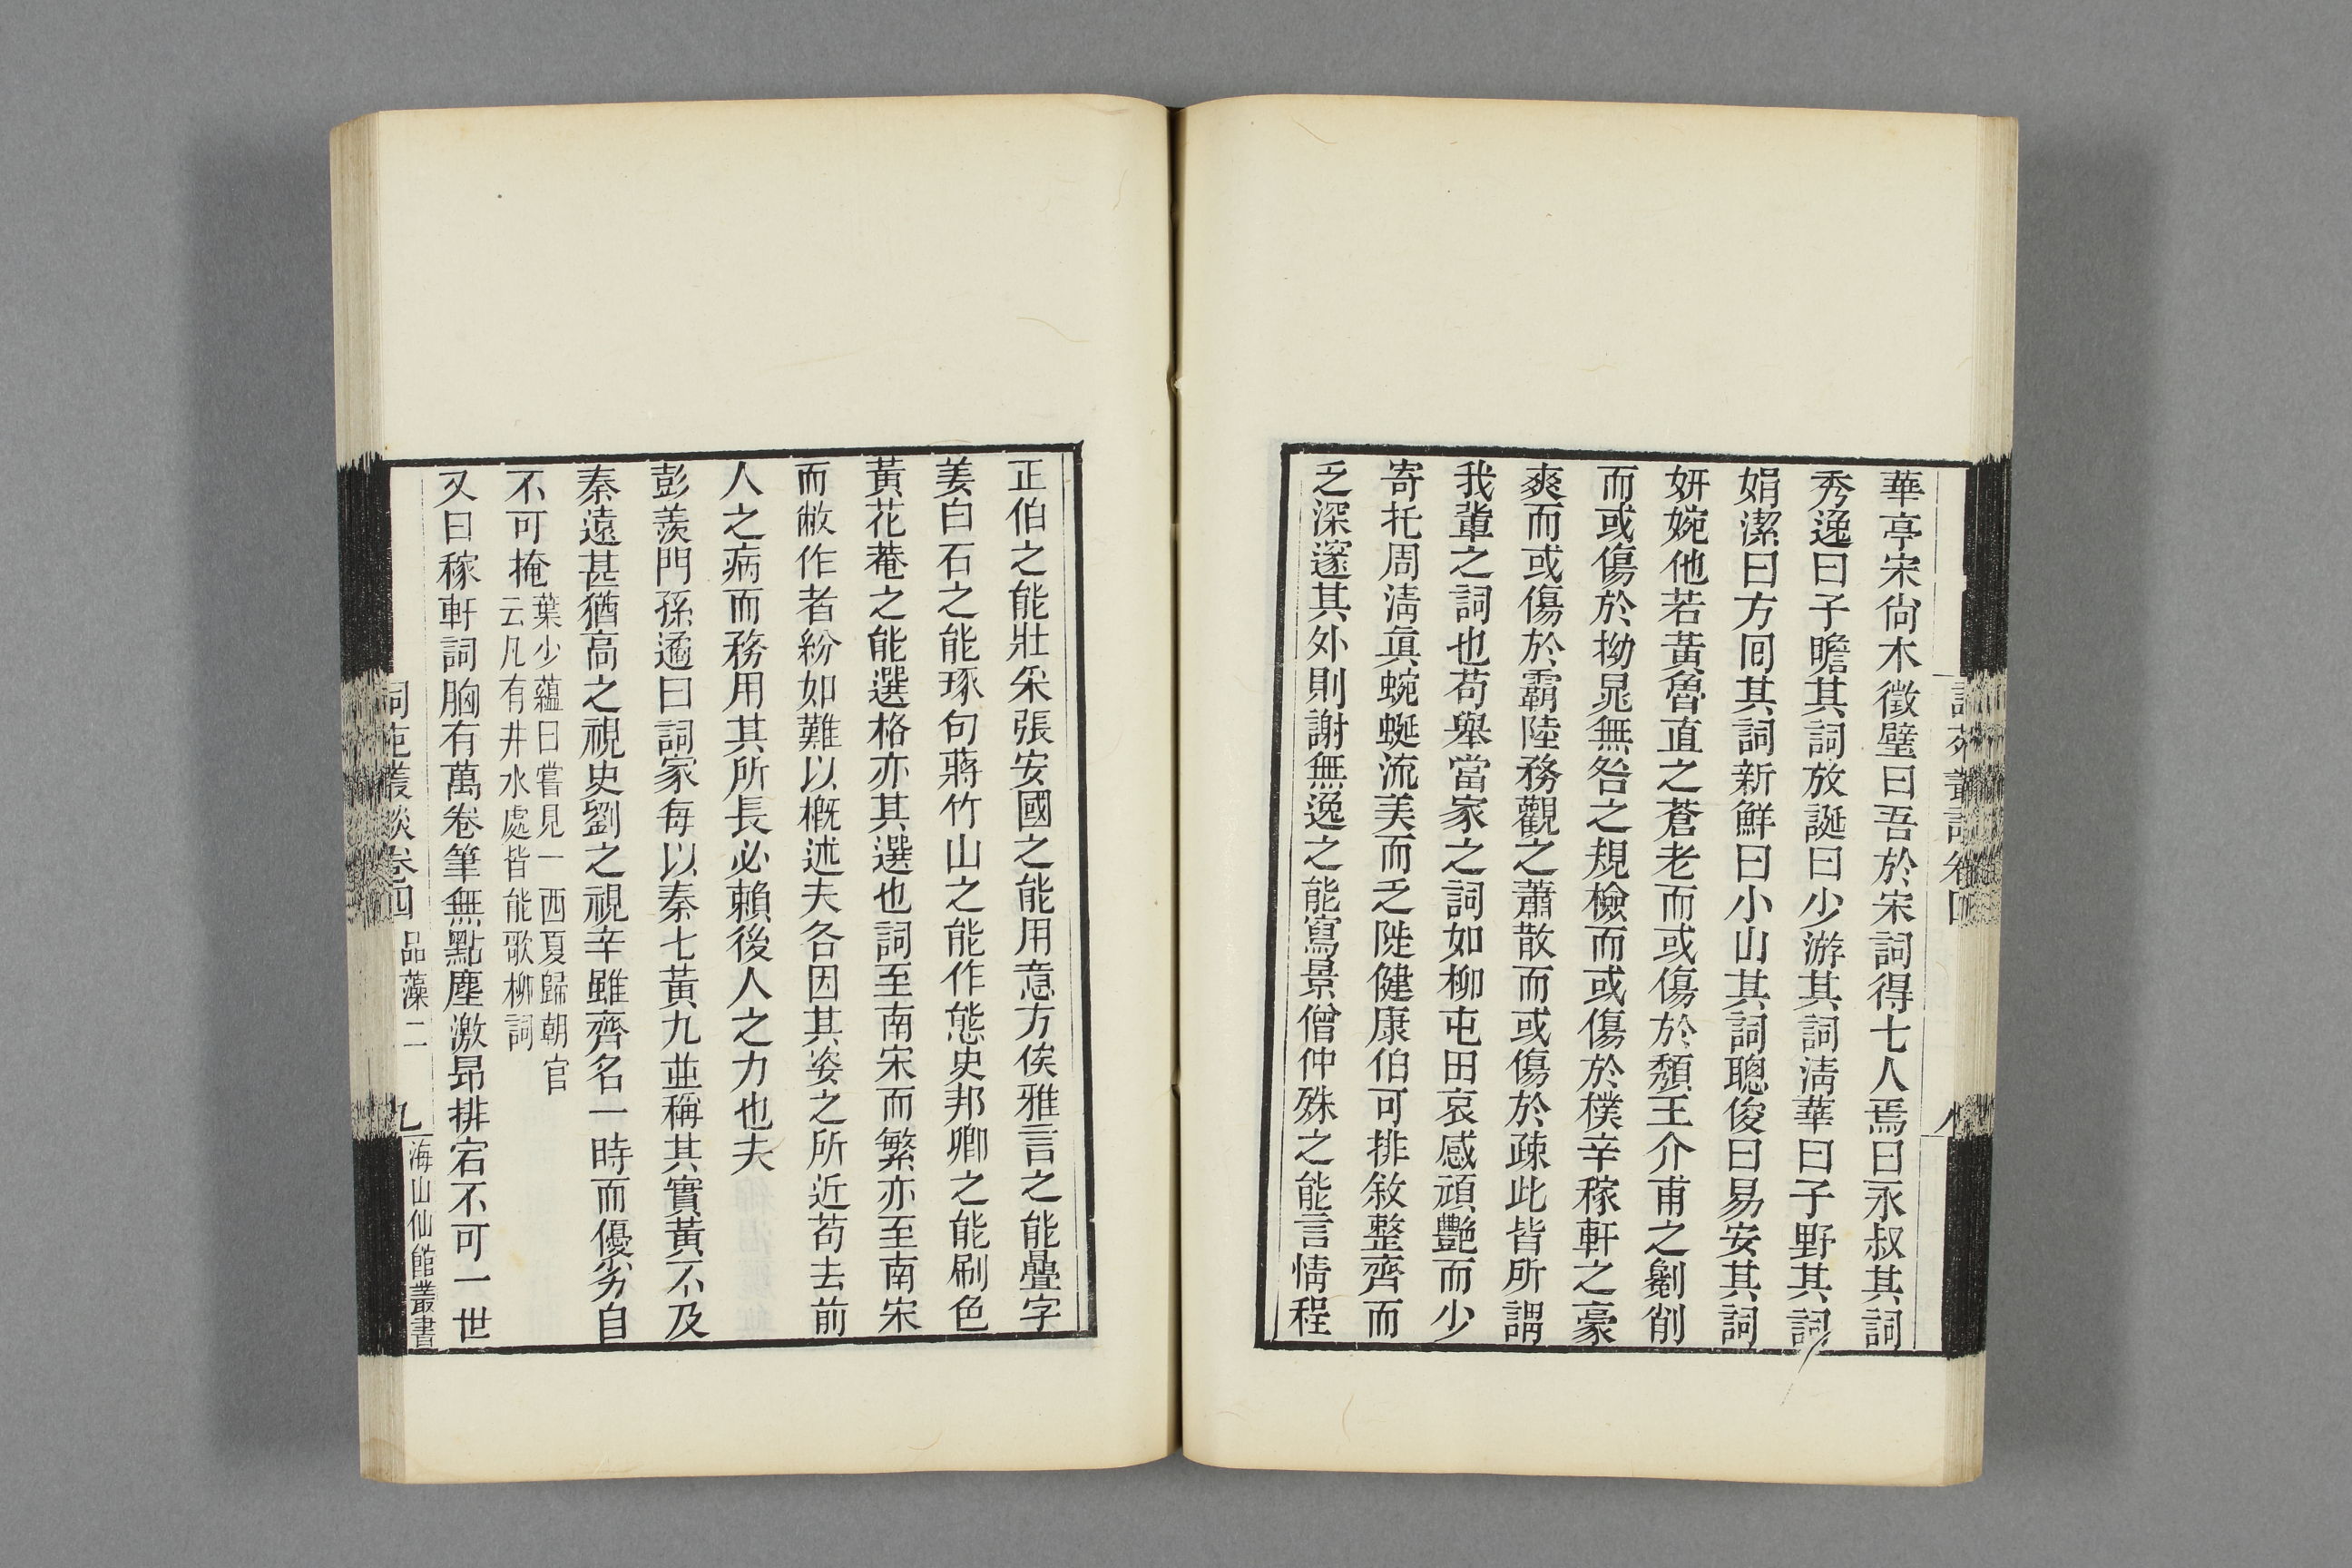 華亭宋尙木徵璧曰吾於宋詞得七人焉曰永叔其詞
秀逸曰子瞻其詞放誕曰少游其詞淸華曰子野其詞
娟潔曰方回其詞新鮮曰小山其詞聰俊曰易安其詞
姸婉他若黃魯直之蒼老而或傷於頹王介甫之劖削
而或傷於拗晁無咎之規檢而或傷於樸辛稼軒之豪
爽而或傷於霸陸務觀之蕭散而或傷於疎此皆所謂
我輩之詞也苟舉當家之詞如柳屯田哀感頑豔而少
寄托周淸眞蜿蜒流美而乏陡健康伯可排敘整齊而
乏深邃其外則謝無逸之能寫景僧仲殊之能言情程
正伯之能壯采張安國之能用意万俟雅言之能疊字
姜白石之能琢句蔣竹山之能作態史邦卿之能刷色
黃花菴之能選格亦其選也詞至南宋而繁亦至南宋
而敝作者紛如難以槪述夫各因其姿之所近苟去前
人之病而務用其所長必賴後人之力也夫
彭羨門孫遹曰詞家每以秦七黃九並稱其實黃不及
秦遠甚猶高之視史劉之視辛雖齊名一時而優劣自
不可掩
葉少蘊曰嘗見一西夏歸朝官
云凡有井水處皆能歌柳詞
又曰稼軒詞胸有萬卷筆無點塵激昂排宕不可一世
詞苑叢談卷四 品藻二 九 海山仙館叢書